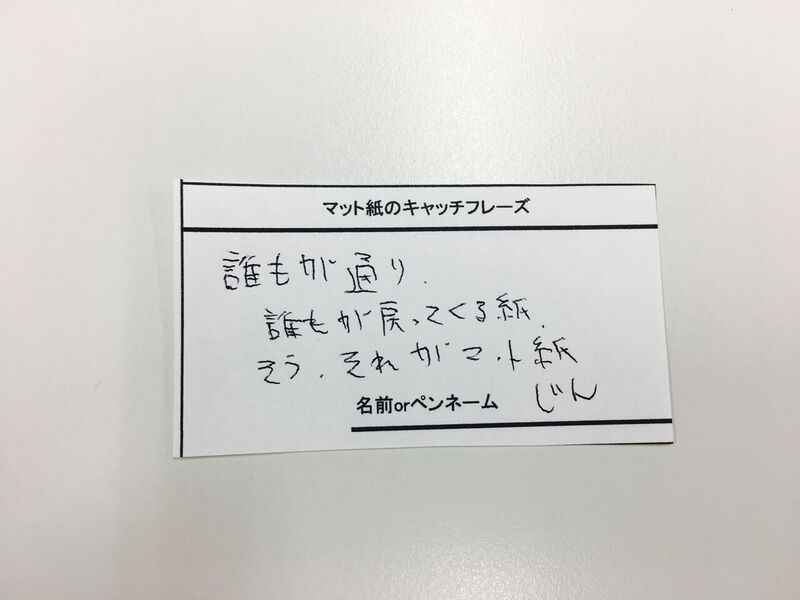 マット紙のキャッチフレーズ
誰もが通り、
誰もが戻ってくる紙、
そう、それがマット紙
名前orペンネーム じん